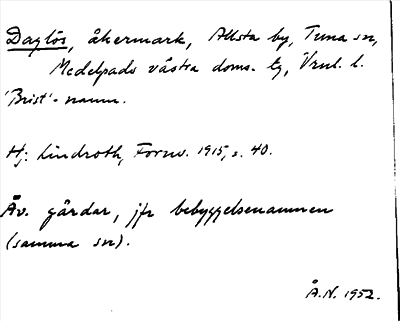 Daglös, åkermark, Allsta by, Tuna sn,
Medelpads västra doms. tg, Vnl. l.
'Brist'- namn.
Hj. Lindroth, Fornv. 1915, s. 40.
Äv. gårdar, jfr bebyggelsenamnen
(samma sn).
Å.N. 1952.